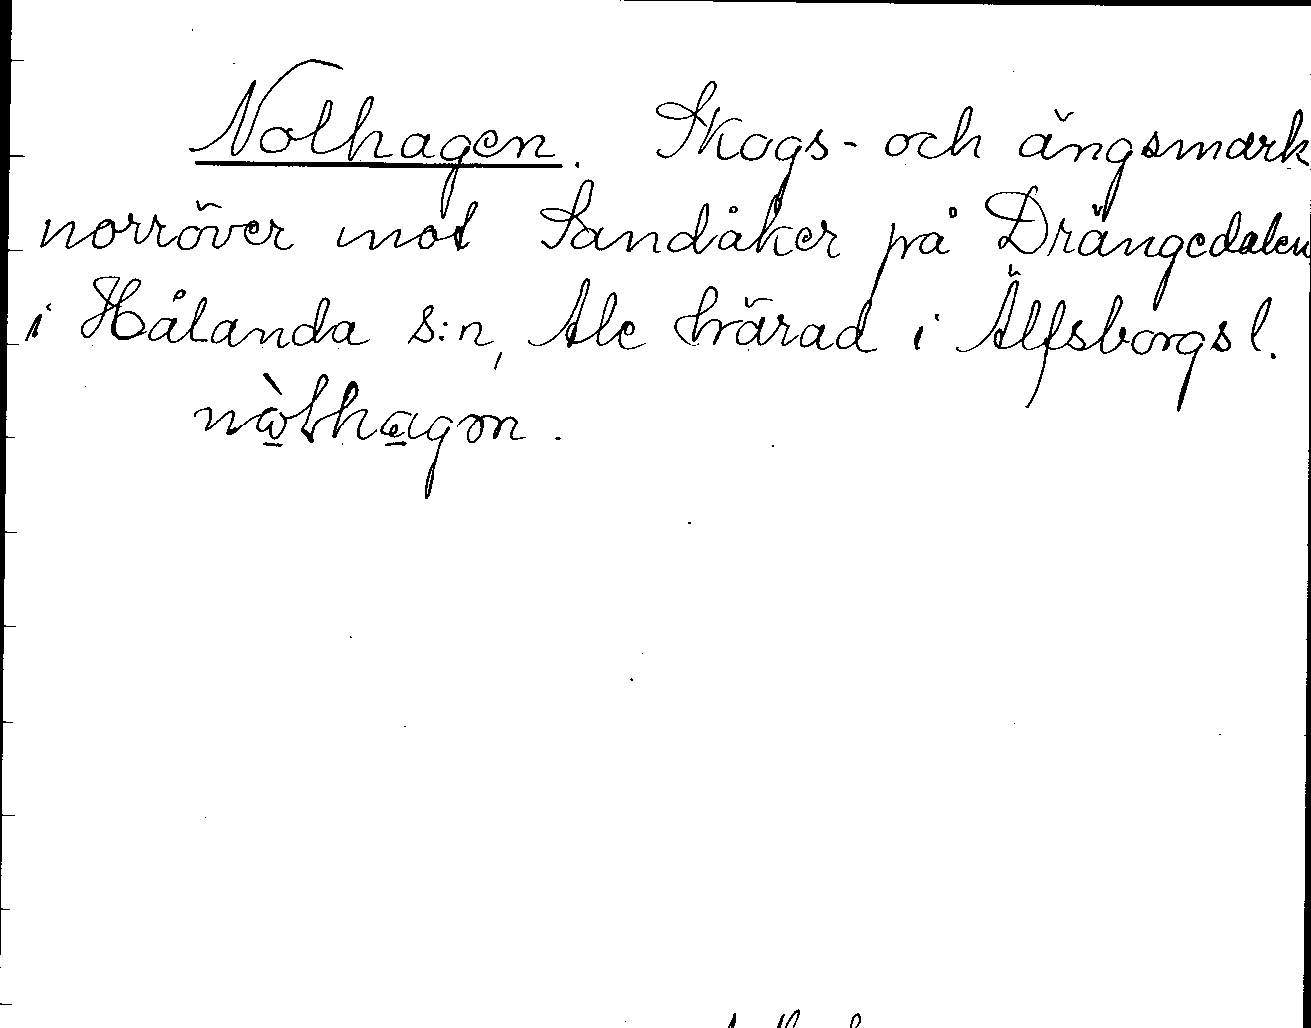 Nolhagen. Skogs- och ängsmark
norröver mot Sandåker på Drängedalen
i Hålanda s:n, Ale härad i Älfsborgs l.
nòlhagən.